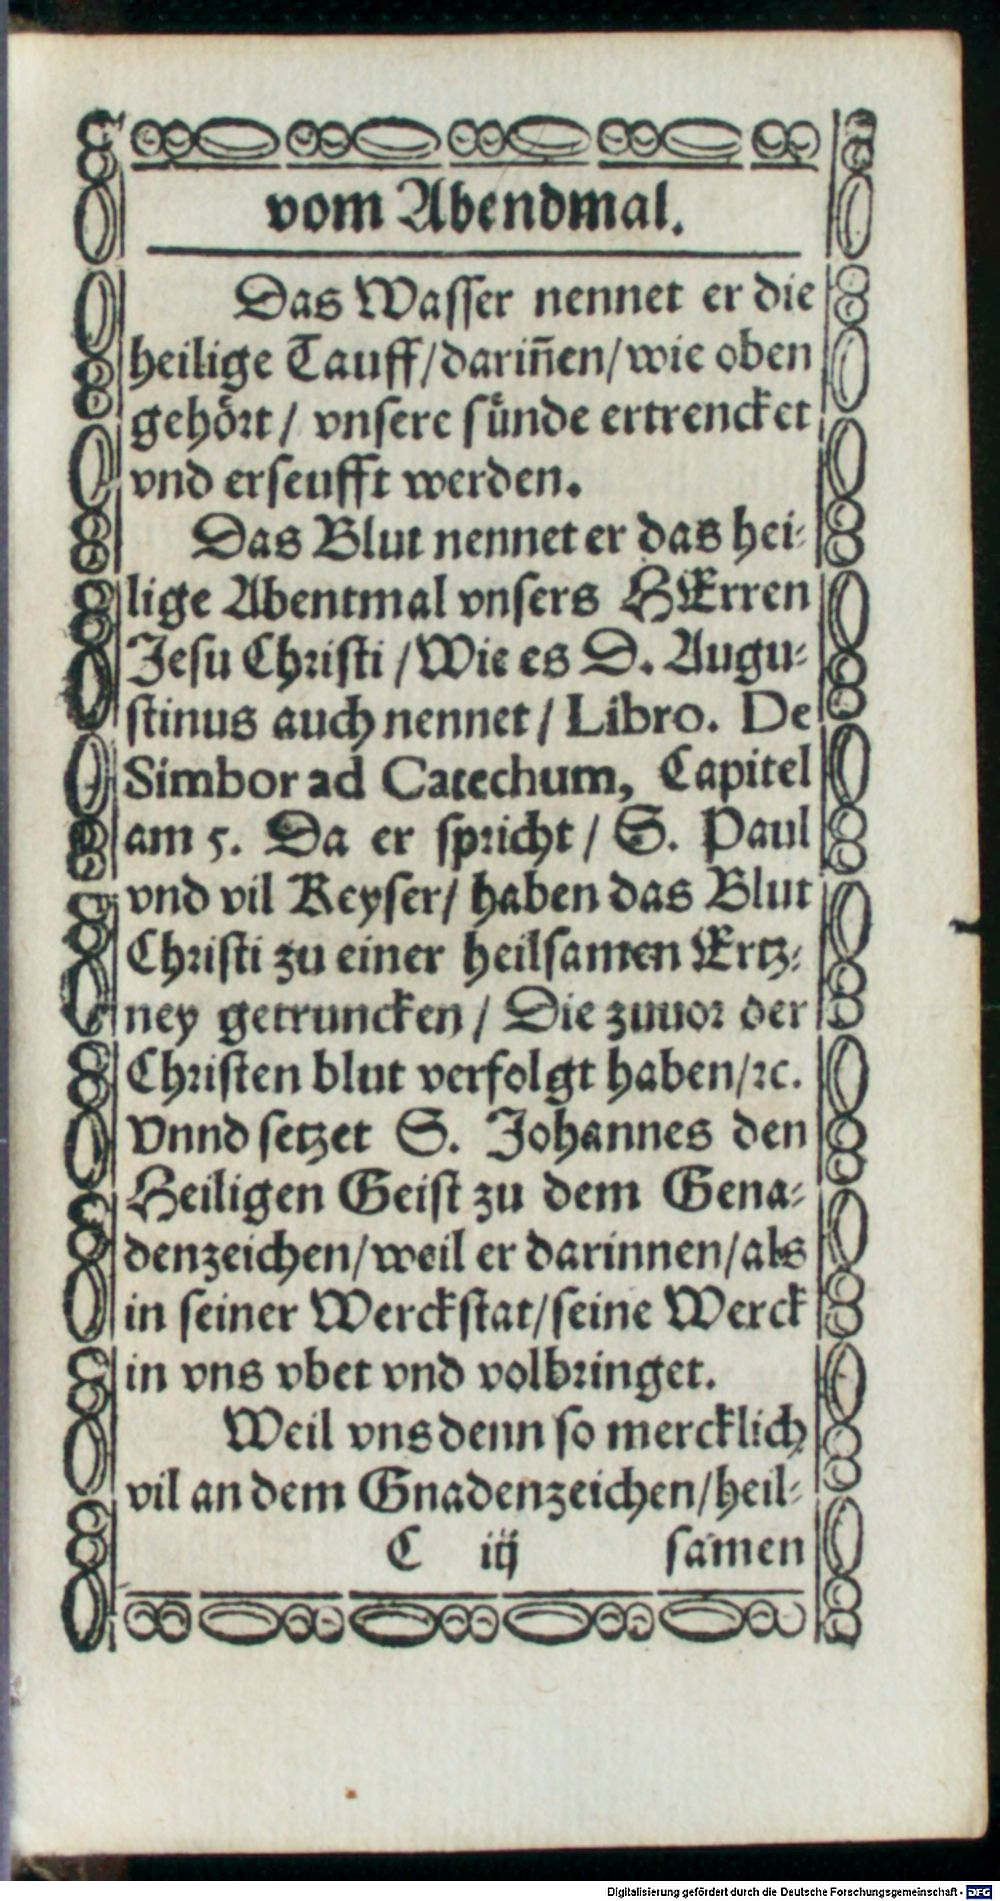 vom Abendmal.
Das Wasser nennet er die
heilige Tauff/darin̄en/wie oben
gehoͤrt/ vnsere suͤnde ertrencket
vnd erseufft werden.
Das Blut nennet er das hei-
lige Abentmal vnsers HErren
Jesu Christi/Wie es D. Augu-
stinus auch nennet/Libro. De
Simbor ad Catechum, Capitel
am 5. Da er spricht/S. Paul
vnd vil Keyser/ haben das Blut
Christi zu einer heilsamen Ertz-
ney getruncken/Die zuuor der
Christen blut verfolgt haben/ꝛc.
Vnnd setzet S. Johannes den
Heiligen Geist zu dem Gena-
denzeichen/weil er darinnen/als
in seiner Werckstat/seine Werck
in vns vbet vnd volbringet.
Weil vns denn so mercklich
vil an dem Gnadenzeichen/heil-
C iij samen
Digitalisierung gefördert durch die Deutsche Forschungsgemeinschaft - DFG